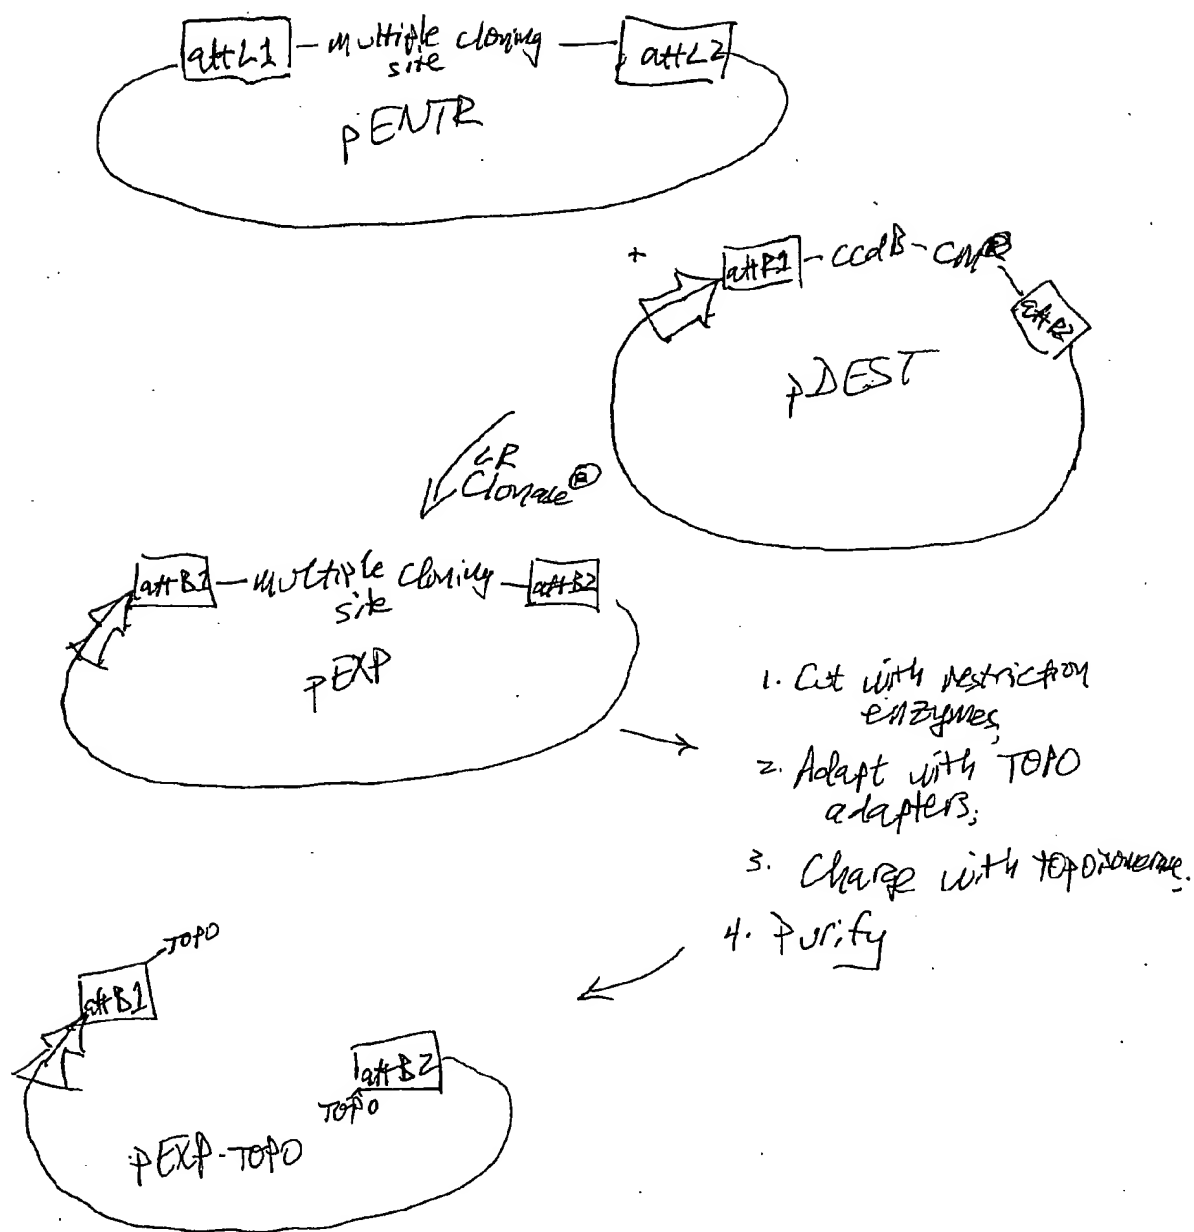 attL1 — multiple cloning — attL2
site
pENTR
+
attR1 - ccdB - CM®
attR2
pDEST
LR
Clonase®
attB1 — multiple cloning — attB2
site
pEXP
1. Cut with restriction
enzymes;
2. Adapt with TOPO
adapters;
3. Charge with topoisomerase.
4. Purify
TOPO
attB1
attB2
TOPO
pEXP-TOPO